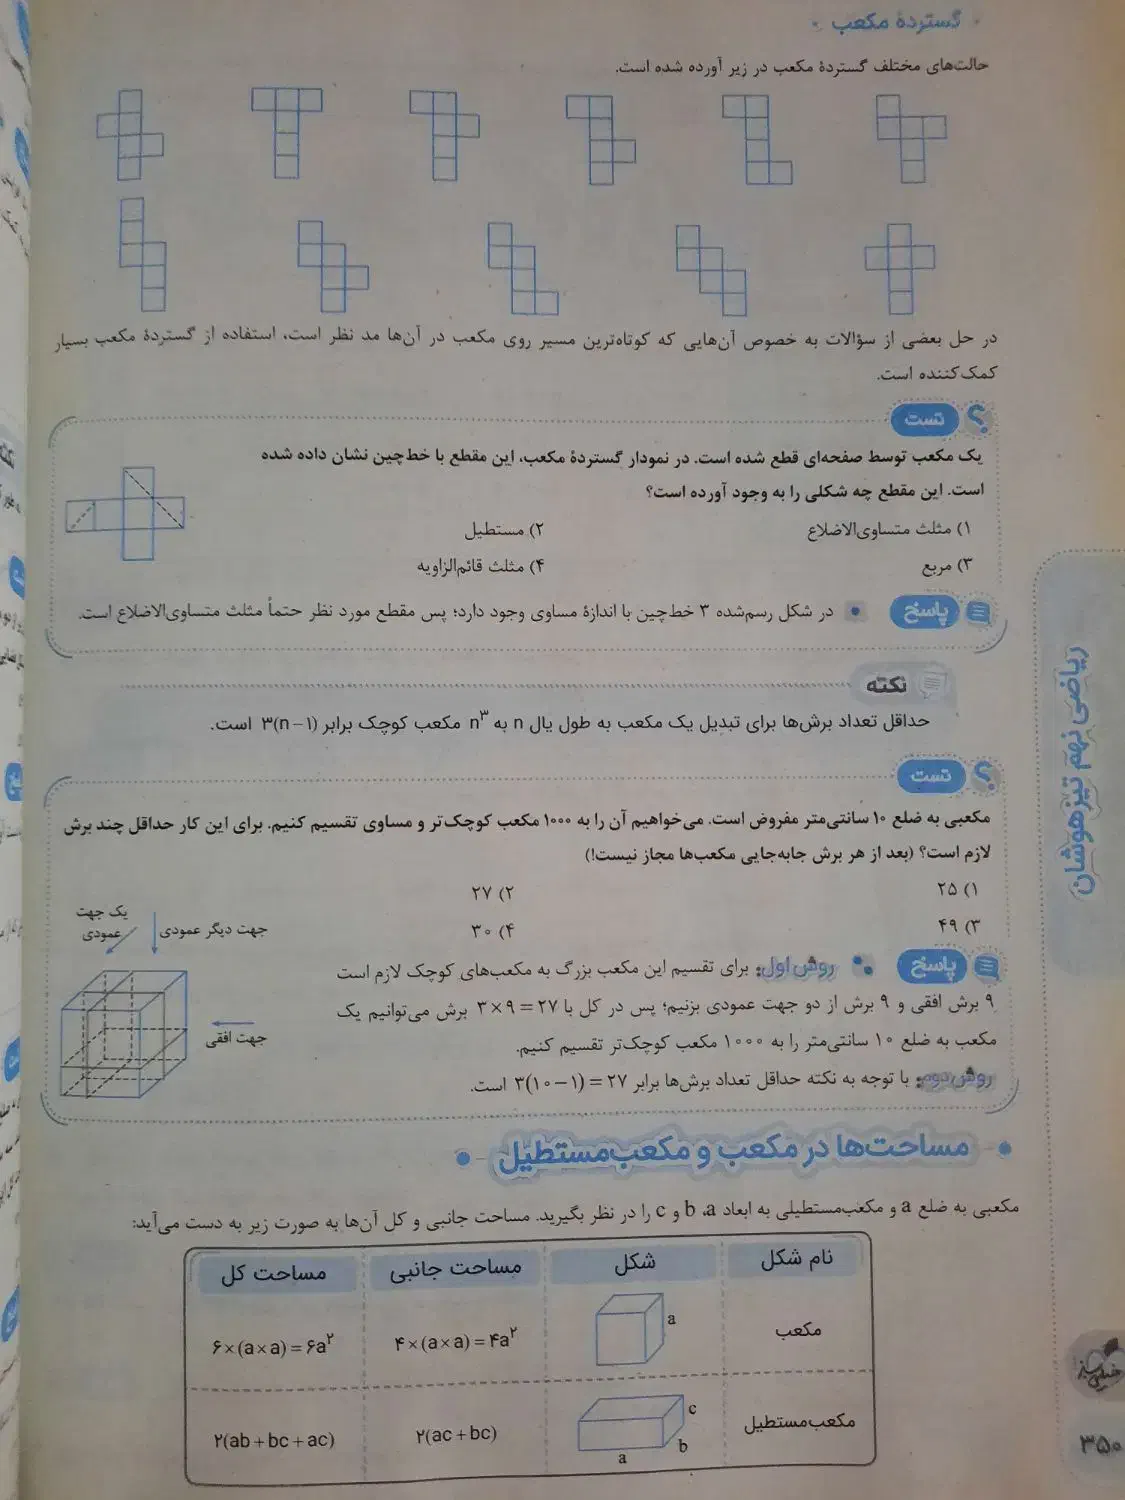 گستردهٔ مکعب
حالت‌های مختلف گستردهٔ مکعب در زیر آورده شده است.
در حل بعضی از سؤالات به خصوص آن‌هایی که کوتاه‌ترین مسیر روی مکعب در آن‌ها مد نظر است، استفاده از گستردهٔ مکعب بسیار
کمک‌کننده است.
؟ تست
یک مکعب توسط صفحه‌ای قطع شده است. در نمودار گستردهٔ مکعب، این مقطع با خط‌چین نشان داده شده
است. این مقطع چه شکلی را به وجود آورده است؟
۱) مثلث متساوی‌الاضلاع ۲) مستطیل
۳) مربع ۴) مثلث قائم‌الزاویه
پاسخ در شکل رسم‌شده ۳ خط‌چین با اندازهٔ مساوی وجود دارد؛ پس مقطع مورد نظر حتماً مثلث متساوی‌الاضلاع است.
نکته
حداقل تعداد برش‌ها برای تبدیل یک مکعب به طول یال n به n³ مکعب کوچک برابر ۳(n-۱) است.
؟ تست
مکعبی به ضلع ۱۰ سانتی‌متر مفروض است. می‌خواهیم آن را به ۱۰۰۰ مکعب کوچک‌تر و مساوی تقسیم کنیم. برای این کار حداقل چند برش
لازم است؟ (بعد از هر برش جابه‌جایی مکعب‌ها مجاز نیست!)
۱) ۲۵ ۲) ۲۷
۳) ۴۹ ۴) ۳۰
پاسخ روش اول: برای تقسیم این مکعب بزرگ به مکعب‌های کوچک لازم است
۹ برش افقی و ۹ برش از دو جهت عمودی بزنیم؛ پس در کل با ۳×۹=۲۷ برش می‌توانیم یک
مکعب به ضلع ۱۰ سانتی‌متر را به ۱۰۰۰ مکعب کوچک‌تر تقسیم کنیم.
روش دوم: با توجه به نکته حداقل تعداد برش‌ها برابر ۳(۱۰-۱)=۲۷ است.
یک جهت
عمودی
جهت دیگر عمودی
جهت افقی
مساحت‌ها در مکعب و مکعب‌مستطیل
مکعبی به ضلع a و مکعب‌مستطیلی به ابعاد a، b و c را در نظر بگیرید. مساحت جانبی و کل آن‌ها به صورت زیر به دست می‌آید:
نام شکل شکل مساحت جانبی مساحت کل
مکعب a ۴×(a×a)=۴a² ۶×(a×a)=۶a²
مکعب‌مستطیل a b c ۲(ac+bc) ۲(ab+bc+ac)
ریاضی نهم تیزهوشان
خیلی سبز
۳۵۰